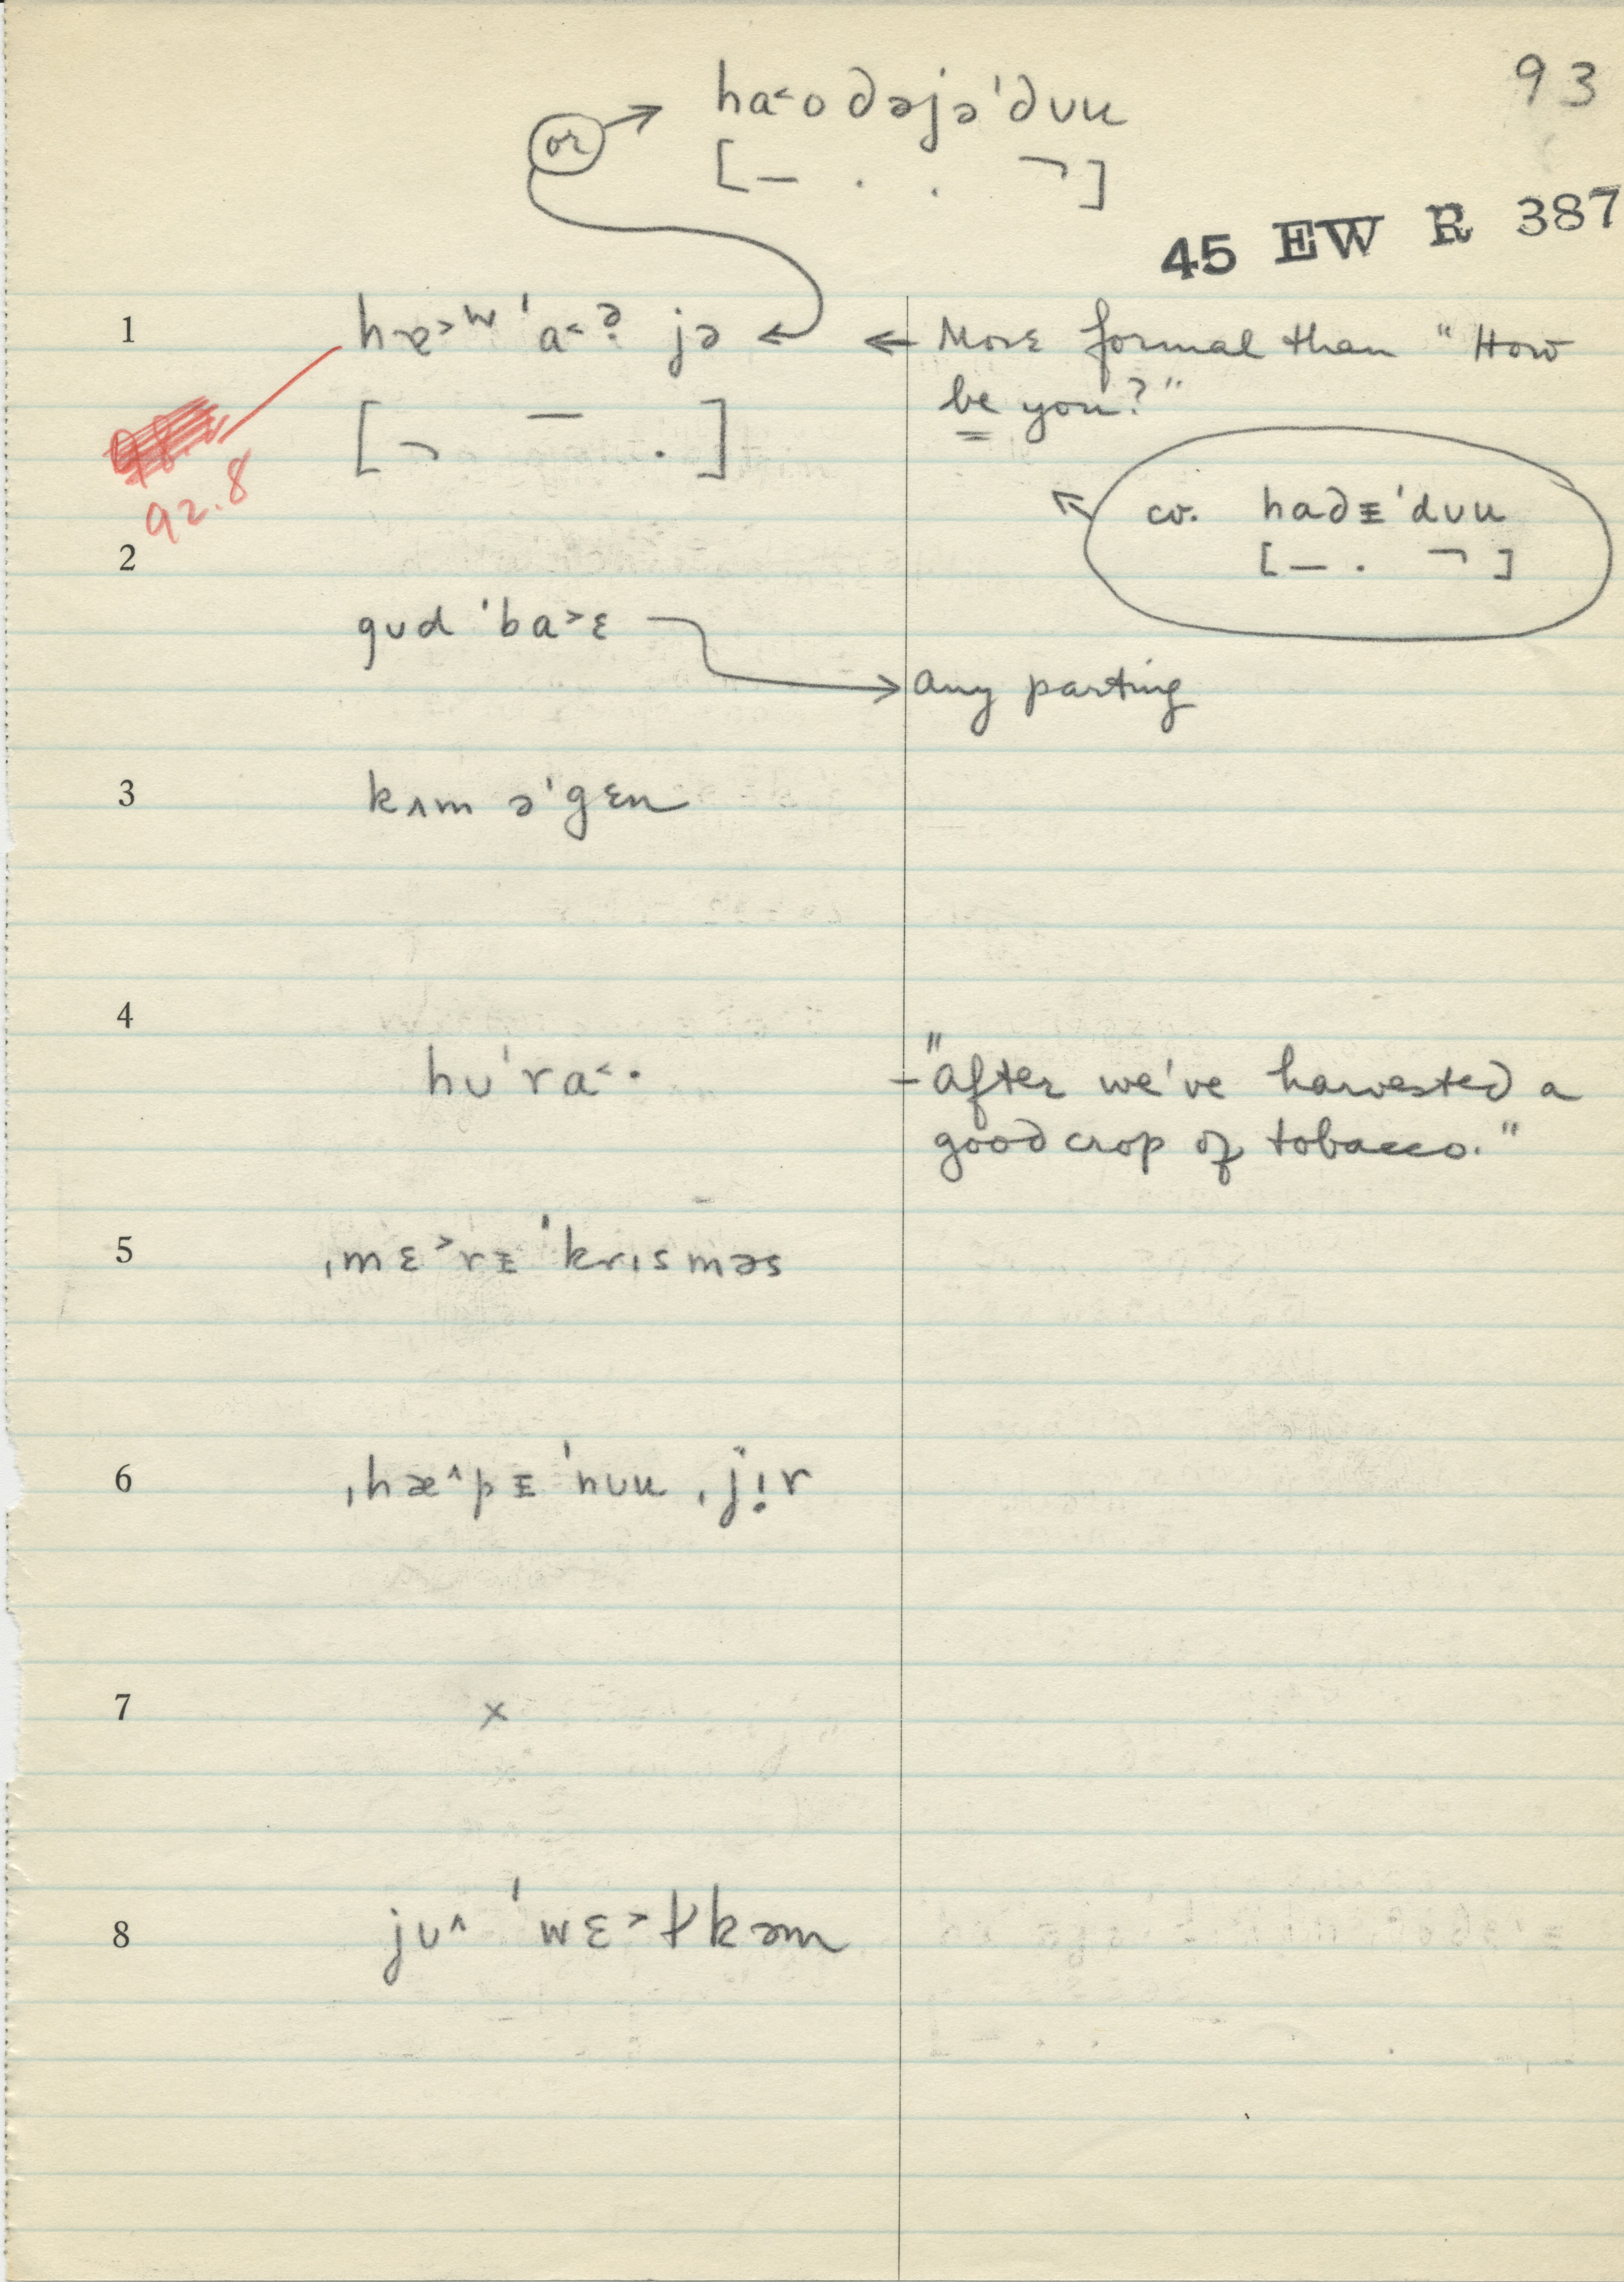 93
or → ha˂odəjə'dʊu
[– . . ¬]
45 EW R 387
1 hɐ˃ʷ 'a˂ɚ̣ jə ← More formal than "How
be you?"
[¬ – .]
92.8
cv. hadᵻ'dʊu
[– . ¬]
2
gʊd 'ba˃ɛ → any parting
3 kʌm ə'gɛn
4
hʊ'ra˂· – "after we've harvested a
good crop of tobacco."
5 ˌmɛ˃rᵻ 'krɪsməs
6 ˌhæ˄pᵻ 'nʊu ˌjɪ̣r
7 x
8 jʊ˄ 'wɛ˃ɫkəm